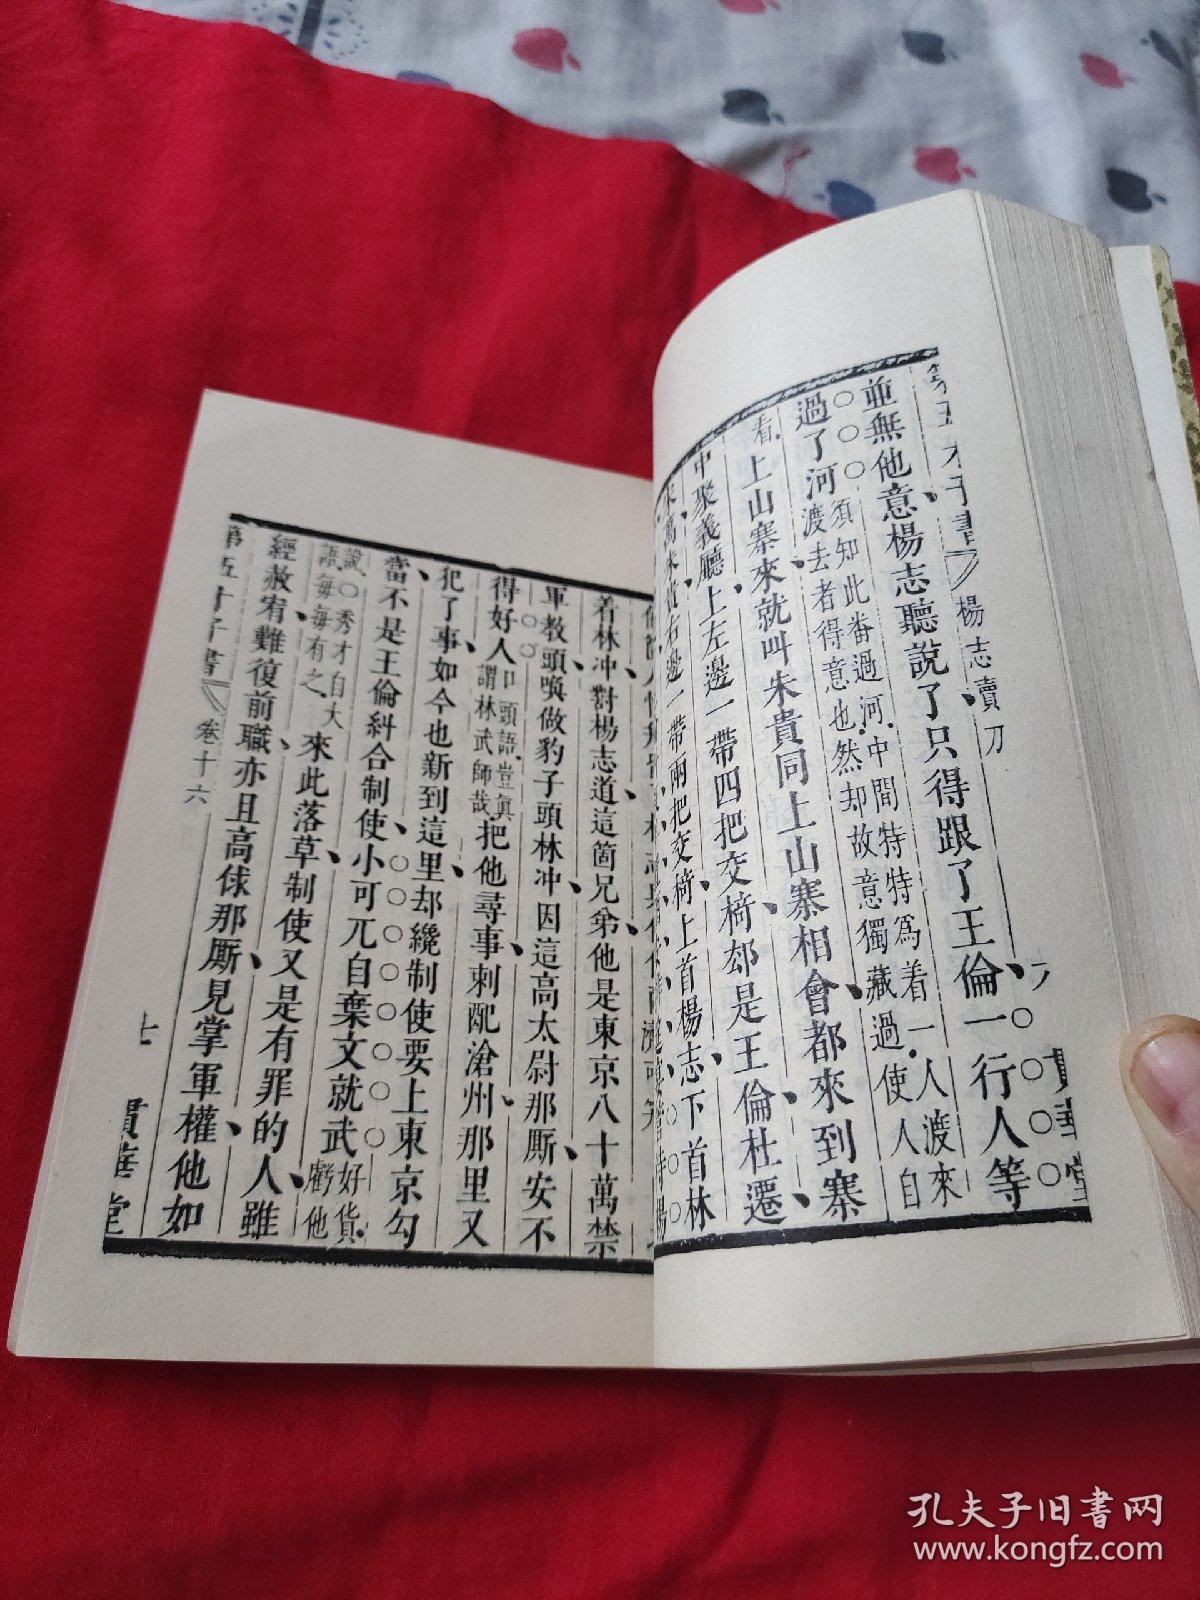 第五才子書 楊志賣刀 貫華堂
並無他意楊志聽說了只得跟了王倫一行人等
過了河
須知此畨過河中間特特爲着一人渡來
渡去者得意也然却故意獨藏過使人自
看上山寨來就叫朱貴同上山寨相會都來到寨
中聚義廳上左邊一帶四把交椅却是王倫杜遷
宋萬朱貴右邊一帶兩把交椅上首楊志下首林
着林冲對楊志道這箇兄弟他是東京八十萬禁
軍教頭喚做豹子頭林冲因這高太尉那厮安不
得好人
口頭語豈眞
謂林武師哉
把他尋事刺配滄州那里又
犯了事如今也新到這里却纔制使要上東京勾
當不是王倫糾合制使小可兀自棄文就武
好貨
虧他
說○秀才自大
語每每有之
來此落草制使又是有罪的人雖
經赦宥難復前職亦且高俅那厮見掌軍權他如
第五才子書 卷十六 七 貫華堂
孔夫子旧书网
www.kongfz.com